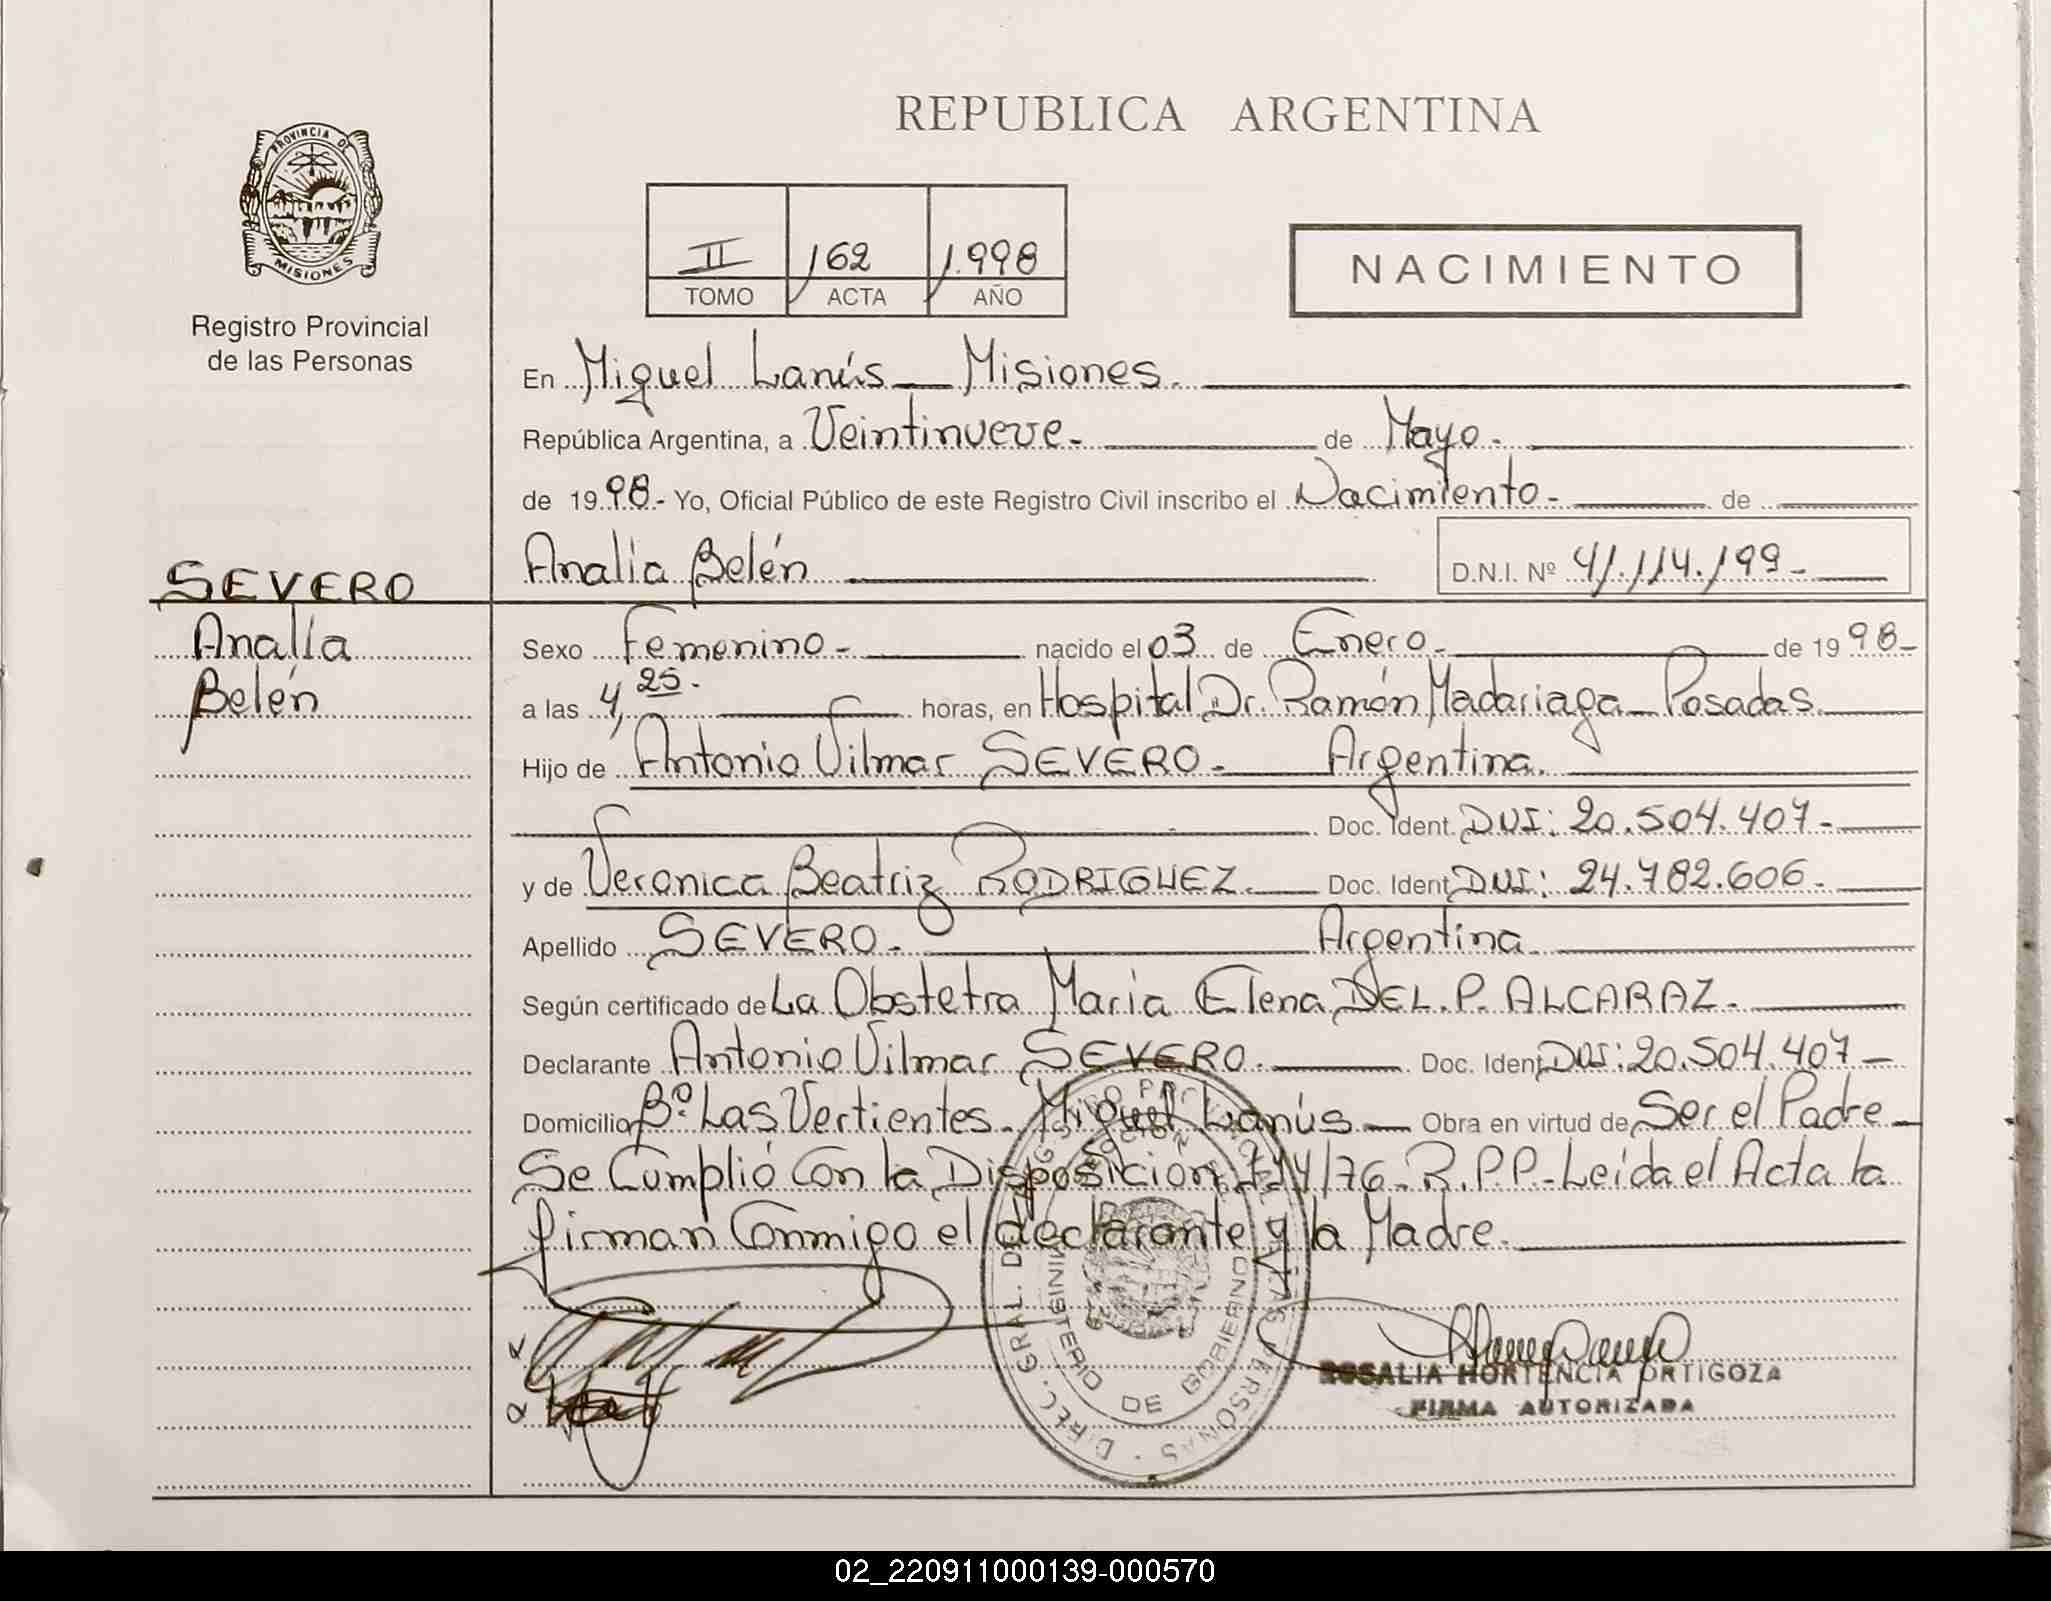 REPUBLICA ARGENTINA
PROVINCIA DE
MISIONES
Registro Provincial
de las Personas
II 162 1.998
TOMO ACTA AÑO
NACIMIENTO
En Miguel Lanús - Misiones.
República Argentina, a Veintinueve.- de Mayo.-
de 1998.- Yo, Oficial Público de este Registro Civil inscribo el Nacimiento.- de
Analía Belén D.N.I. Nº 41.114.199.-
SEVERO
Analía
Belén
Sexo Femenino.- nacido el 03 de Enero.- de 1998.-
a las 4,25.- horas, en Hospital Dr. Ramón Madariaga - Posadas.
Hijo de Antonio Vilmar SEVERO.- Argentina.
Doc. Ident. DNI: 20.504.407.-
y de Veronica Beatriz RODRIGUEZ. Doc. Ident DNI: 24.782.606.-
Apellido SEVERO.- Argentina
Según certificado de La Obstetra María Elena DEL.P.ALCARAZ.-
Declarante Antonio Vilmar SEVERO. Doc. Ident DNI: 20.504.407.-
Domicilio Bº Las Vertientes - Miguel Lanús - Obra en virtud de Ser el Padre -
Se Cumplió Con la Disposición /76 - R.P.P.- Leída el Acta la
firman Conmigo el declarante y la Madre.
DIREC. GRAL. DEL REGISTRO PROVINCIAL DE LAS PERSONAS
MINISTERIO DE GOBIERNO
ROSALIA HORTENCIA ORTIGOZA
FIRMA AUTORIZADA
02_220911000139-000570